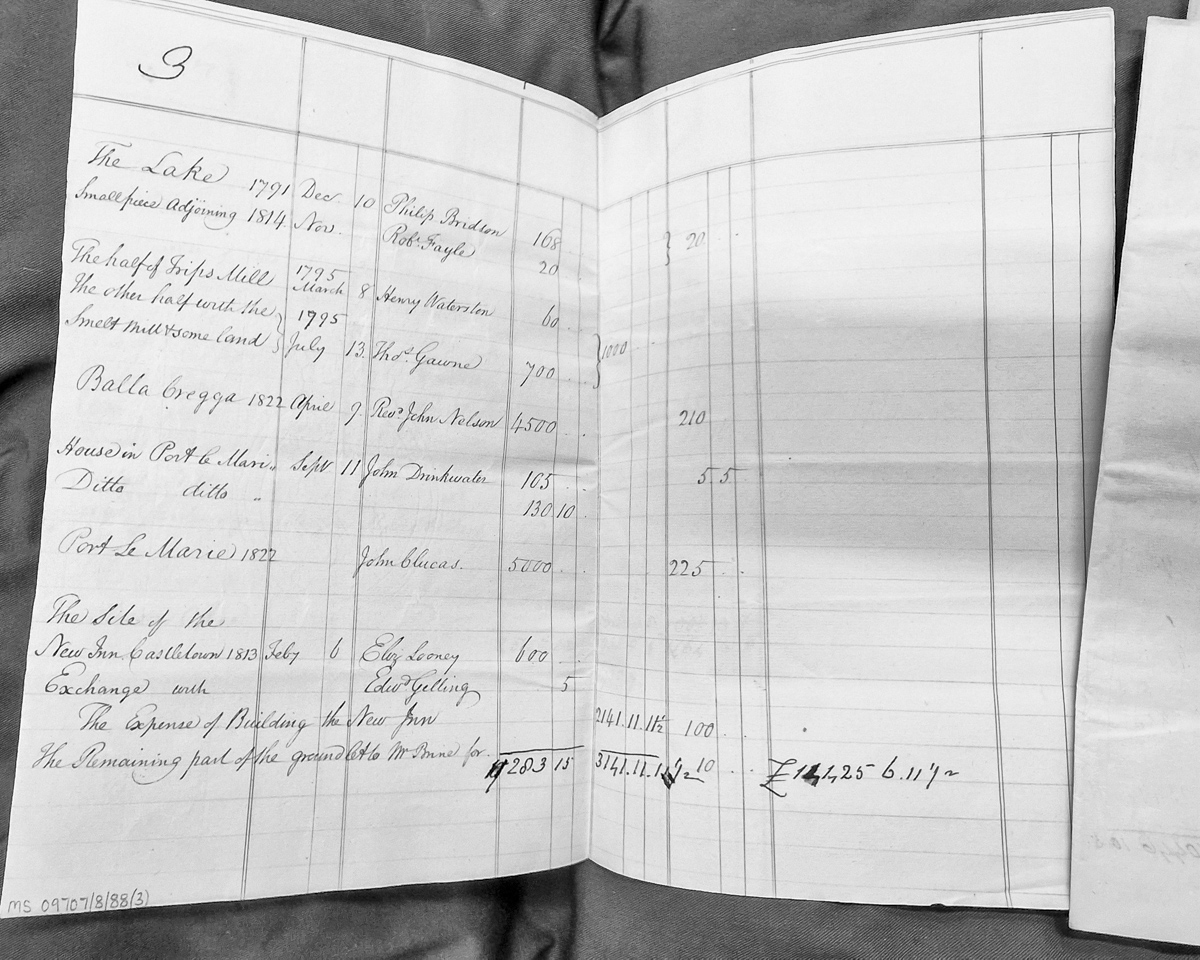 3
The Lake 1791 Decr 10 Philip Bridson 168
Small piece Adjoining 1814 Novr. Robt Fayle 20 } 20
The half of Trips Mill 1795 March 8 Henry Waterston 60
The other half with the } 1795
Smelt Mill & some land } July 13 Thos. Gawne 700 } 1000
Balla Cregga 1822 April 9 Revd. John Nelson 4500 210
House in Port le Mari " Sept 11 John Drinkwater 105 5 5
Ditto ditto " 130 10
Port Le Marie 1822 John Clucas. 5000 225
The Site of the
New Inn Castletown 1813 Feby 6 Eliz Looney 600
Exchange with Edwd Gelling 5
The Expense of Building the New Inn 2141.11.11½ 100
The Remaining part of the ground let to Mr for 283 15 3141.11.11½ 10 £ 25 6.11½
MS 09707/8/88(3)